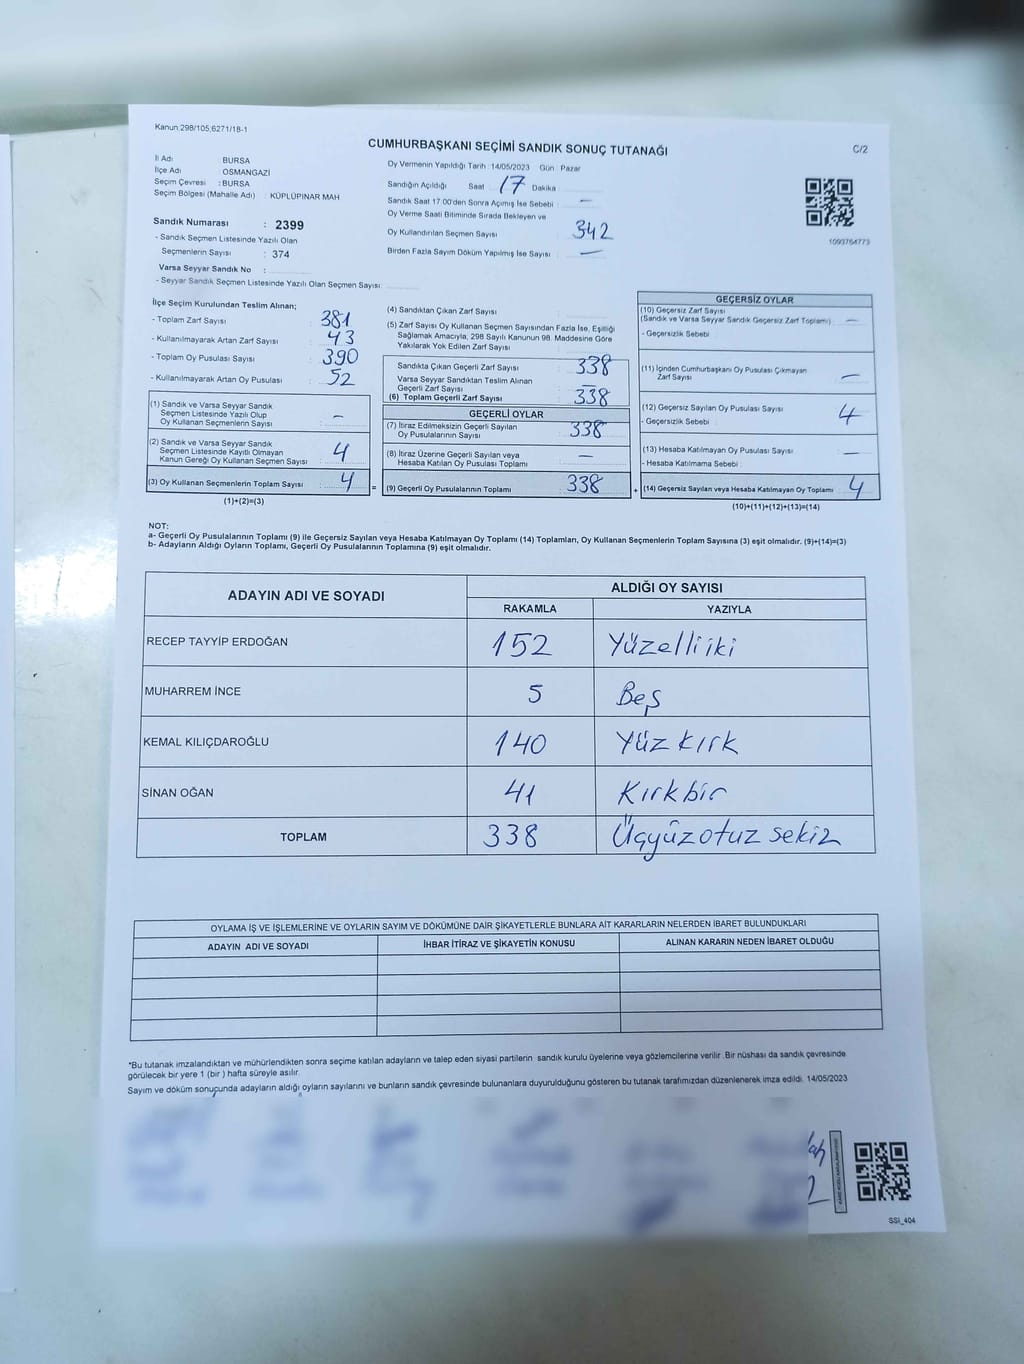 Kanun:298/105;6271/18-1
CUMHURBAŞKANI SEÇİMİ SANDIK SONUÇ TUTANAĞI
C/2
İl Adı BURSA
İlçe Adı OSMANGAZİ
Seçim Çevresi : BURSA
Seçim Bölgesi (Mahalle Adı) : KÜPLÜPINAR MAH
Sandık Numarası : 2399
- Sandık Seçmen Listesinde Yazılı Olan
Seçmenlerin Sayısı : 374
Varsa Seyyar Sandık No :
- Seyyar Sandık Seçmen Listesinde Yazılı Olan Seçmen Sayısı:
Oy Vermenin Yapıldığı Tarih :14/05/2023 Gün : Pazar
Sandığın Açıldığı Saat 17 Dakika
Sandık Saat 17.00'den Sonra Açımış İse Sebebi : —
Oy Verme Saati Bitiminde Sırada Bekleyen ve
Oy Kullandırılan Seçmen Sayısı 342
Birden Fazla Sayım Döküm Yapılmış İse Sayısı : —
1093764773
İlçe Seçim Kurulundan Teslim Alınan;
- Toplam Zarf Sayısı : 381
- Kullanılmayarak Artan Zarf Sayısı : 43
- Toplam Oy Pusulası Sayısı : 390
- Kullanılmayarak Artan Oy Pusulası : 52
(1) Sandık ve Varsa Seyyar Sandık
Seçmen Listesinde Yazılı Olup
Oy Kullanan Seçmenlerin Sayısı : —
(2) Sandık ve Varsa Seyyar Sandık
Seçmen Listesinde Kayıtlı Olmayan
Kanun Gereği Oy Kullanan Seçmen Sayısı : 4
(3) Oy Kullanan Seçmenlerin Toplam Sayısı : 4
(1)+(2)=(3)
(4) Sandıktan Çıkan Zarf Sayısı :
(5) Zarf Sayısı Oy Kullanan Seçmen Sayısından Fazla İse, Eşitliği
Sağlamak Amacıyla, 298 Sayılı Kanunun 98. Maddesine Göre
Yakılarak Yok Edilen Zarf Sayısı :
Sandıkta Çıkan Geçerli Zarf Sayısı : 338
Varsa Seyyar Sandıktan Teslim Alınan
Geçerli Zarf Sayısı : —
(6) Toplam Geçerli Zarf Sayısı : 338
GEÇERLİ OYLAR
(7) İtiraz Edilmeksizin Geçerli Sayılan
Oy Pusulalarının Sayısı : 338
(8) İtiraz Üzerine Geçerli Sayılan veya
Hesaba Katılan Oy Pusulası Toplamı : —
= (9) Geçerli Oy Pusulalarının Toplamı : 338
GEÇERSİZ OYLAR
(10) Geçersiz Zarf Sayısı
(Sandık ve Varsa Seyyar Sandık Geçersiz Zarf Toplamı) : —
- Geçersizlik Sebebi :
(11) İçinden Cumhurbaşkanı Oy Pusulası Çıkmayan
Zarf Sayısı : —
(12) Geçersiz Sayılan Oy Pusulası Sayısı : 4
- Geçersizlik Sebebi :
(13) Hesaba Katılmayan Oy Pusulası Sayısı : —
- Hesaba Katılmama Sebebi :
+ (14) Geçersiz Sayılan veya Hesaba Katılmayan Oy Toplamı : 4
(10)+(11)+(12)+(13)=(14)
NOT:
a- Geçerli Oy Pusulalarının Toplamı (9) ile Geçersiz Sayılan veya Hesaba Katılmayan Oy Toplamı (14) Toplamları, Oy Kullanan Seçmenlerin Toplam Sayısına (3) eşit olmalıdır. (9)+(14)=(3)
b- Adayların Aldığı Oyların Toplamı, Geçerli Oy Pusulalarının Toplamına (9) eşit olmalıdır.
ADAYIN ADI VE SOYADI ALDIĞI OY SAYISI
RAKAMLA YAZIYLA
RECEP TAYYİP ERDOĞAN 152 Yüzelliiki
MUHARREM İNCE 5 Beş
KEMAL KILIÇDAROĞLU 140 Yüz kırk
SİNAN OĞAN 41 Kırkbir
TOPLAM 338 Üçyüzotuz sekiz
OYLAMA İŞ VE İŞLEMLERİNE VE OYLARIN SAYIM VE DÖKÜMÜNE DAİR ŞİKAYETLERLE BUNLARA AİT KARARLARIN NELERDEN İBARET BULUNDUKLARI
ADAYIN ADI VE SOYADI İHBAR İTİRAZ VE ŞİKAYETİN KONUSU ALINAN KARARIN NEDEN İBARET OLDUĞU
*Bu tutanak imzalandıktan ve mühürlendikten sonra seçime katılan adayların ve talep eden siyasi partilerin sandık kurulu üyelerine veya gözlemcilerine verilir. Bir nüshası da sandık çevresinde
görülecek bir yere 1 (bir ) hafta süreyle asılır.
Sayım ve döküm sonuçunda adayların aldığı oyların sayılarını ve bunların sandık çevresinde bulunanlara duyurulduğunu gösteren bu tutanak tarafımızdan düzenlenerek imza edildi. 14/05/2023
SSI_404